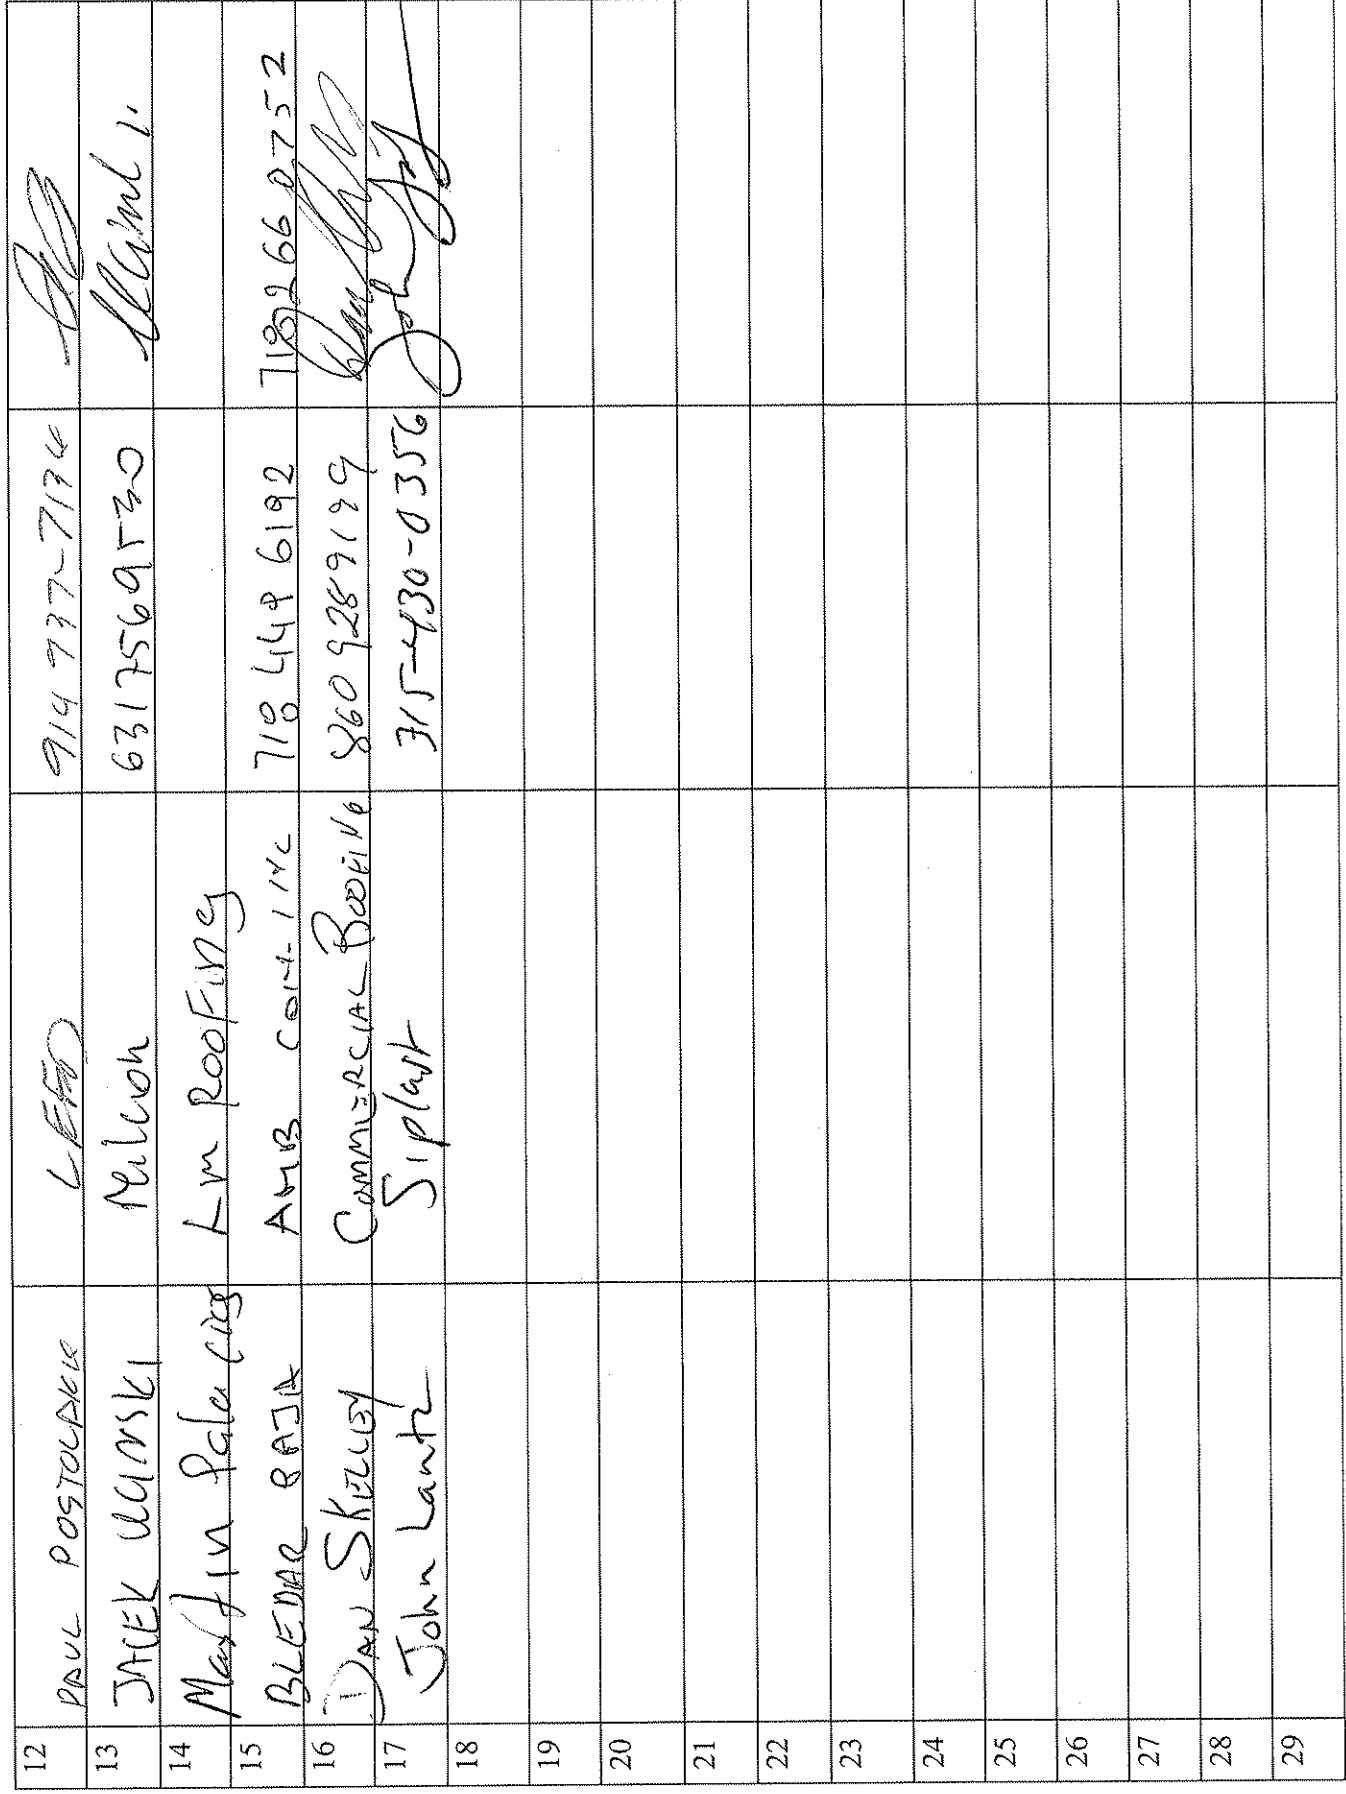 12 PAUL POSTOLAKIE LEED 914 937-7134
13 JACEK Milcon 631 756 9530
14 Martin Palacios Lm RooFing
15 BLEDAR BAJA AMB CONT. INC 718 448 6192 718 266 0752
16 DAN SKELLEY COMMERCIAL ROOFING 860 9289199
17 John Lantz Siplast 315-430-0356
18
19
20
21
22
23
24
25
26
27
28
29